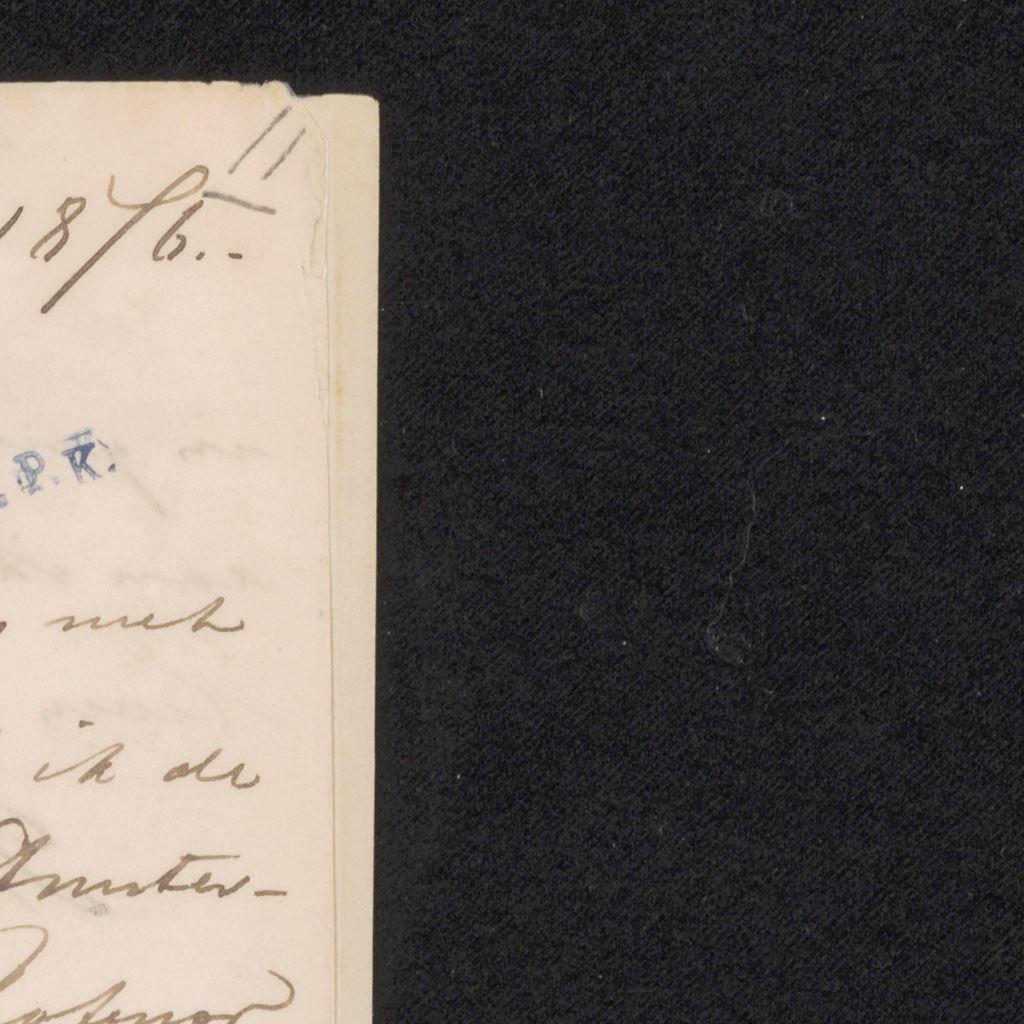 11
1876.-
.P.K.
met
ik de
Amster-